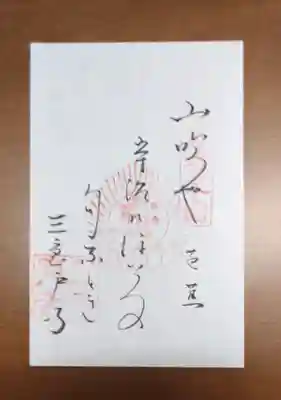 山吹や 芭蕉
宇治のほいろの
匂ふとき
三室戸寺